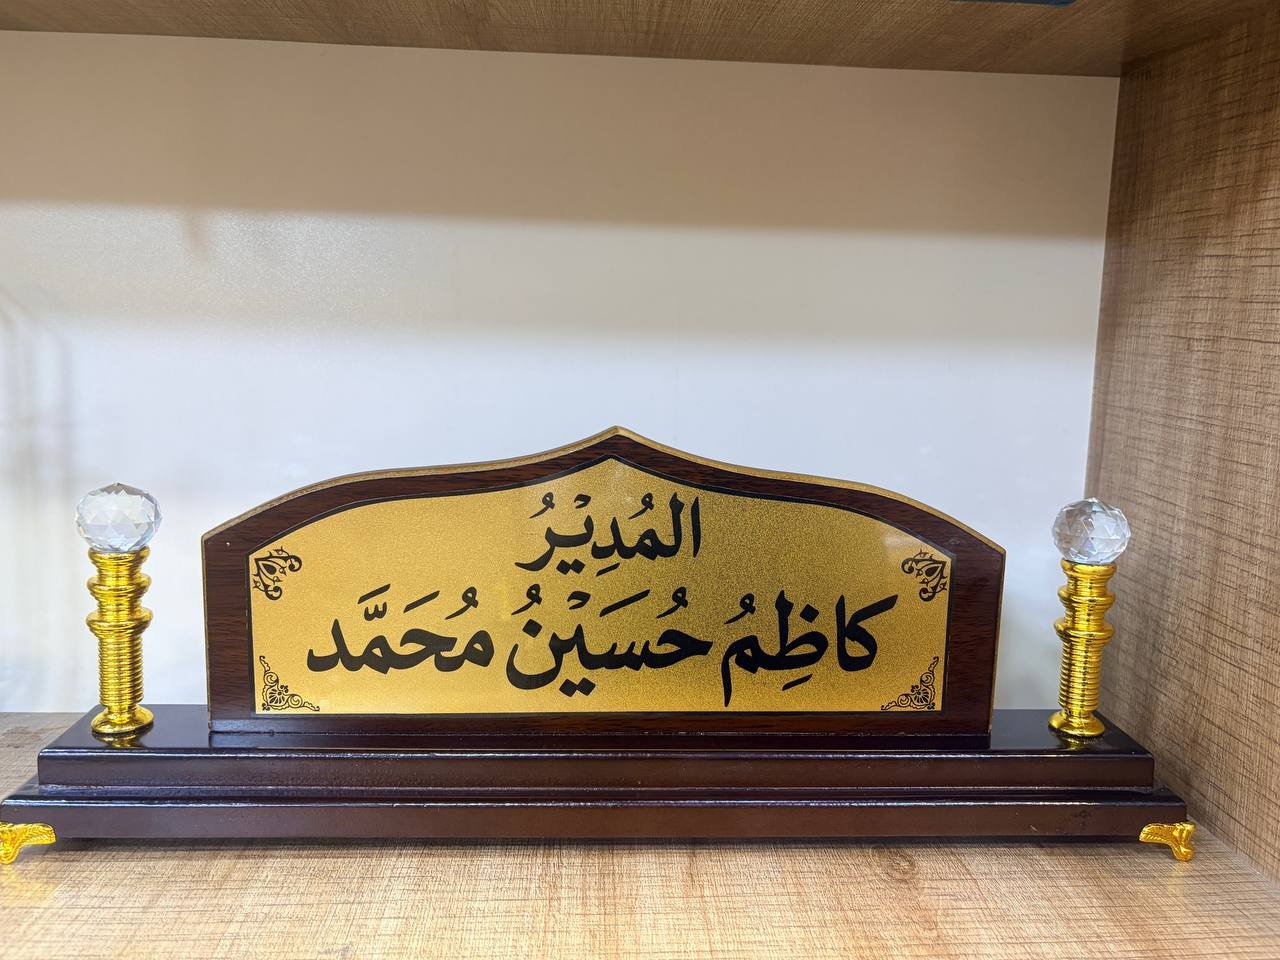 المُدِيْرُ
كاظِمُ حُسَيْنُ مُحَمَّد